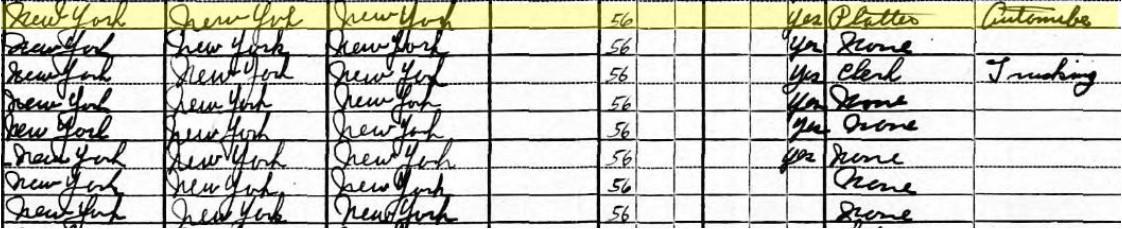 New York New York New York 56 Yes Platter Automibes
New York New York New York 56 Yes None
New York New York New York 56 Yes Clerk Trucking
New York New York New York 56 Yes None
New York New York New York 56 Yes None
New York New York New York 56 Yes None
New York New York New York 56 None
New York New York New York 56 None